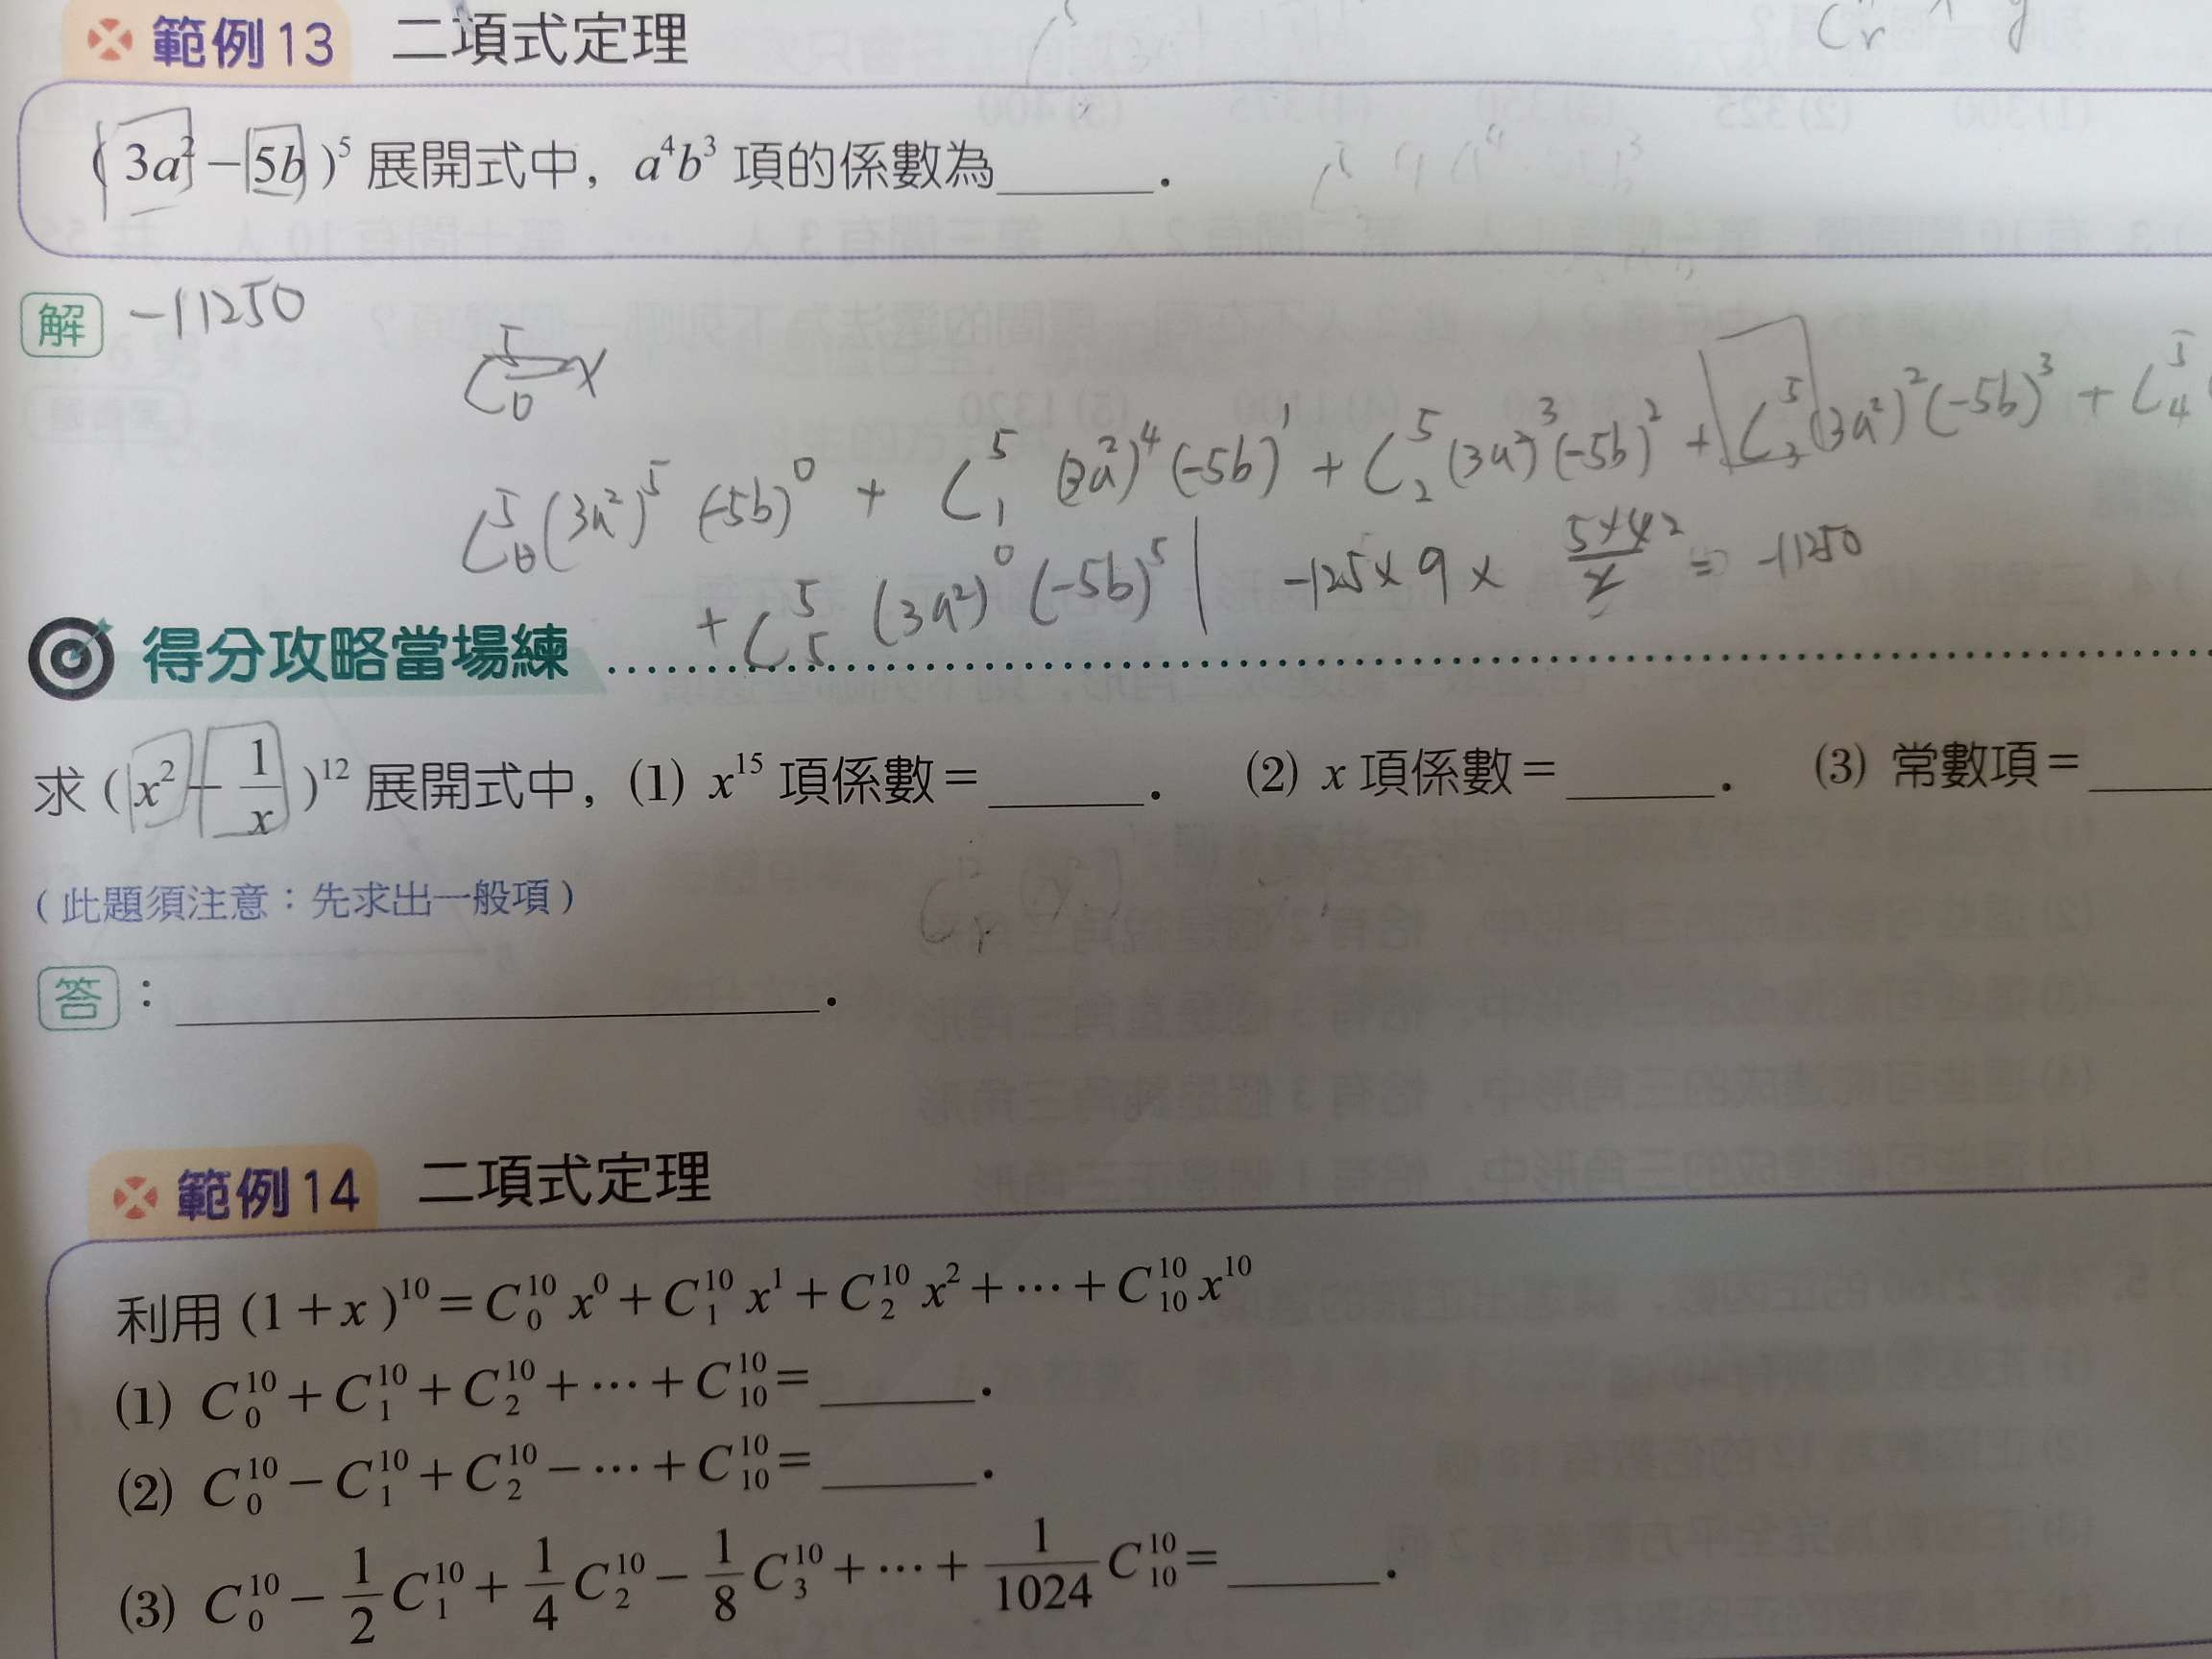 範例13 二項式定理
(3a²-5b)⁵ 展開式中，a⁴b³ 項的係數為______．
解 -11250
C⁵₀x
C⁵₀(3a²)⁵(-5b)⁰ + C⁵₁(3a²)⁴(-5b)¹ + C⁵₂(3a²)³(-5b)² + C⁵₃(3a²)²(-5b)³ + C⁵₄(
+ C⁵₅(3a²)⁰(-5b)⁵ | -125×9×
得分攻略當場練
求 (x²-1/x)¹² 展開式中，(1) x¹⁵ 項係數=______． (2) x 項係數=______． (3) 常數項=______
（此題須注意：先求出一般項）
答：______．
範例14 二項式定理
利用 (1+x)¹⁰=C¹⁰₀x⁰+C¹⁰₁x¹+C¹⁰₂x²+⋯+C¹⁰₁₀x¹⁰
(1) C¹⁰₀+C¹⁰₁+C¹⁰₂+⋯+C¹⁰₁₀=______．
(2) C¹⁰₀-C¹⁰₁+C¹⁰₂-⋯+C¹⁰₁₀=______．
(3) C¹⁰₀-1/2C¹⁰₁+1/4C¹⁰₂-1/8C¹⁰₃+⋯+1/1024C¹⁰₁₀=______．